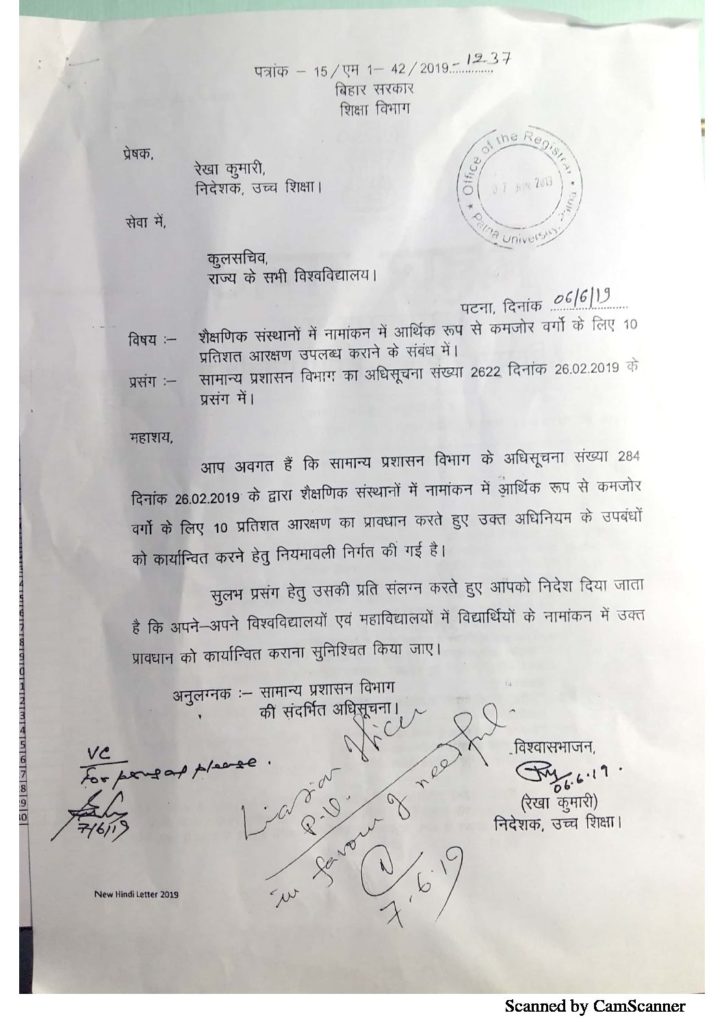 पत्रांक – 15/एम 1– 42/2019.–1237
बिहार सरकार
शिक्षा विभाग
Office of the Registrar
Patna University, Patna
प्रेषक,
रेखा कुमारी,
निदेशक, उच्च शिक्षा।
सेवा में,
कुलसचिव,
राज्य के सभी विश्वविद्यालय।
पटना, दिनांक 06/6/19
विषय :– शैक्षणिक संस्थानों में नामांकन में आर्थिक रूप से कमजोर वर्गो के लिए 10
प्रतिशत आरक्षण उपलब्ध कराने के संबंध में।
प्रसंग :– सामान्य प्रशासन विभाग का अधिसूचना संख्या 2622 दिनांक 26.02.2019 के
प्रसंग में।
महाशय,
आप अवगत हैं कि सामान्य प्रशासन विभाग के अधिसूचना संख्या 284
दिनांक 26.02.2019 के द्वारा शैक्षणिक संस्थानों में नामांकन में आर्थिक रूप से कमजोर
वर्गो के लिए 10 प्रतिशत आरक्षण का प्रावधान करते हुए उक्त अधिनियम के उपबंधों
को कार्यान्वित करने हेतु नियमावली निर्गत की गई है।
सुलभ प्रसंग हेतु उसकी प्रति संलग्न करते हुए आपको निदेश दिया जाता
है कि अपने–अपने विश्वविद्यालयों एवं महाविद्यालयों में विद्यार्थियों के नामांकन में उक्त
प्रावधान को कार्यान्वित कराना सुनिश्चित किया जाए।
अनुलग्नक :– सामान्य प्रशासन विभाग
की संदर्भित अधिसूचना।
VC
For perusal please.
7/6/19
Liasion Officer
P.U.
in favour of needful.
7.6.19
विश्वासभाजन,
06.6.19.
(रेखा कुमारी)
निदेशक, उच्च शिक्षा।
New Hindi Letter 2019
Scanned by CamScanner